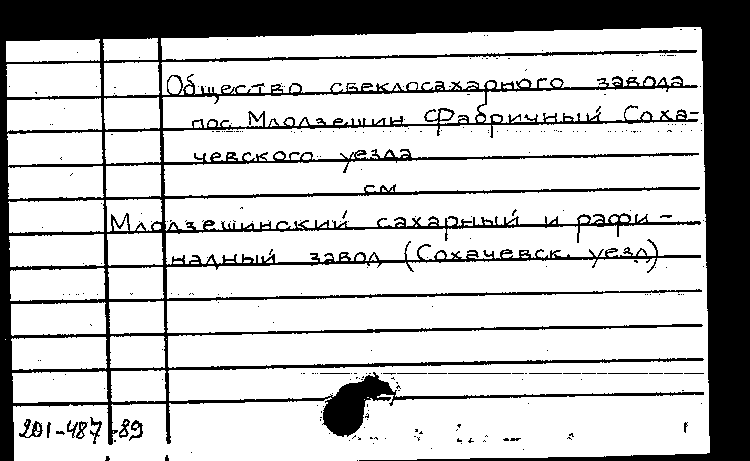 Общество свеклосахарного завода
пос. Млодзешин Фабричный Соха=
чевского уезда
см
Млодзешинский сахарный и рафи-
надный завод (Сохачевск. уезд)
201-487-89